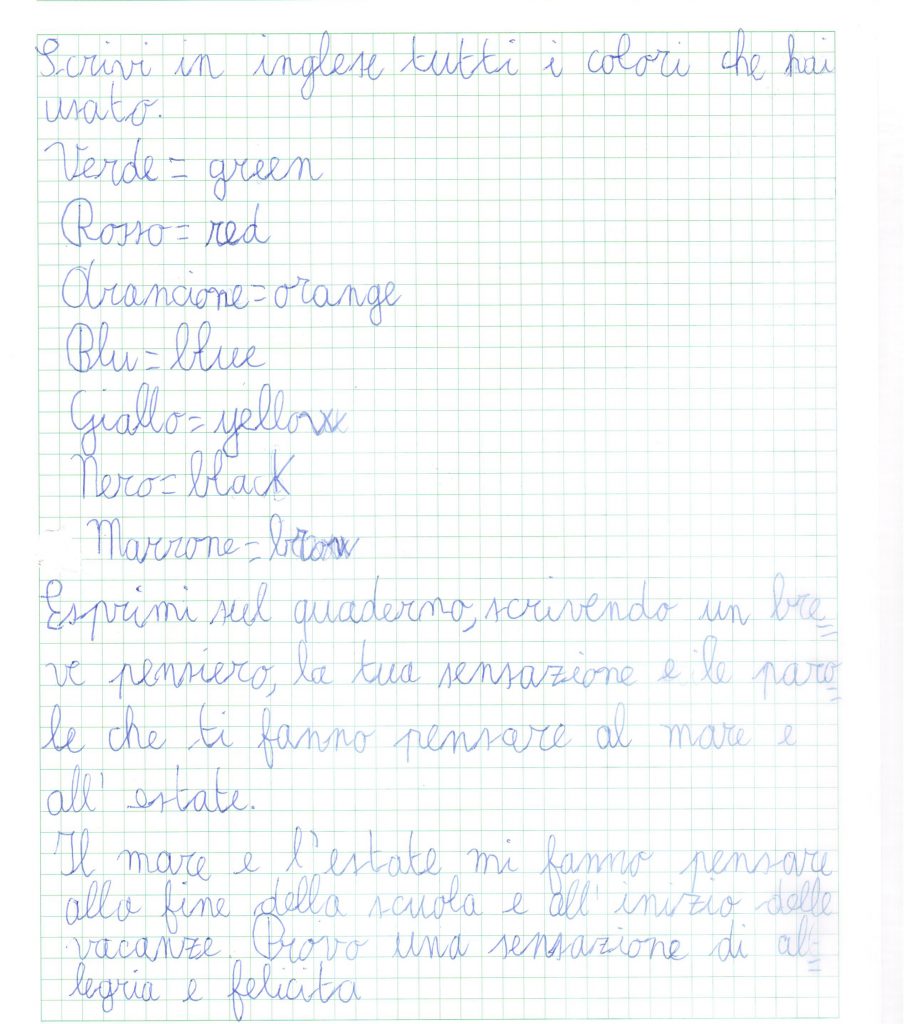 Scrivi in inglese tutti i colori che hai
usato.
Verde = green
Rosso = red
Arancione = orange
Blu = blue
Giallo = yellow
Nero = black
Marrone = brown
Esprimi sul quaderno, scrivendo un bre=
ve pensiero, la tua sensazione e le paro=
le che ti fanno pensare al mare e
all'estate.
Il mare e l'estate mi fanno pensare
alla fine della scuola e all'inizio delle
vacanze. Provo una sensazione di al=
legria e felicita